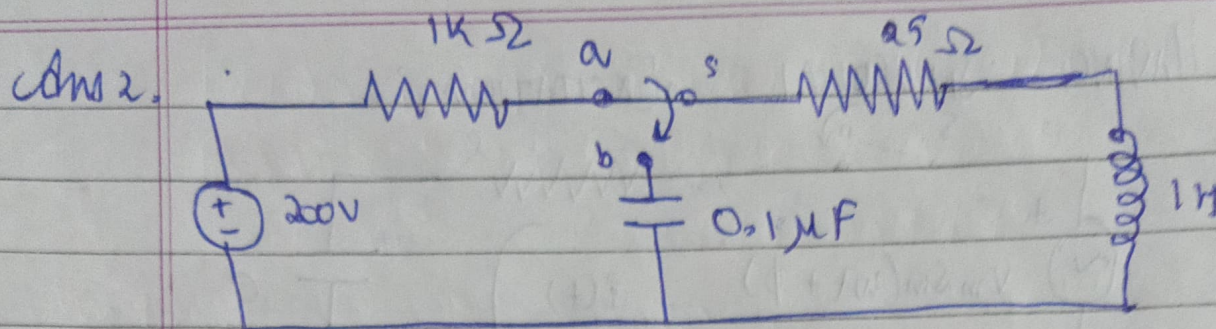 Ans 2.
1K Ω
a
s
25 Ω
b
+
-
200V
0.1 μF
1H